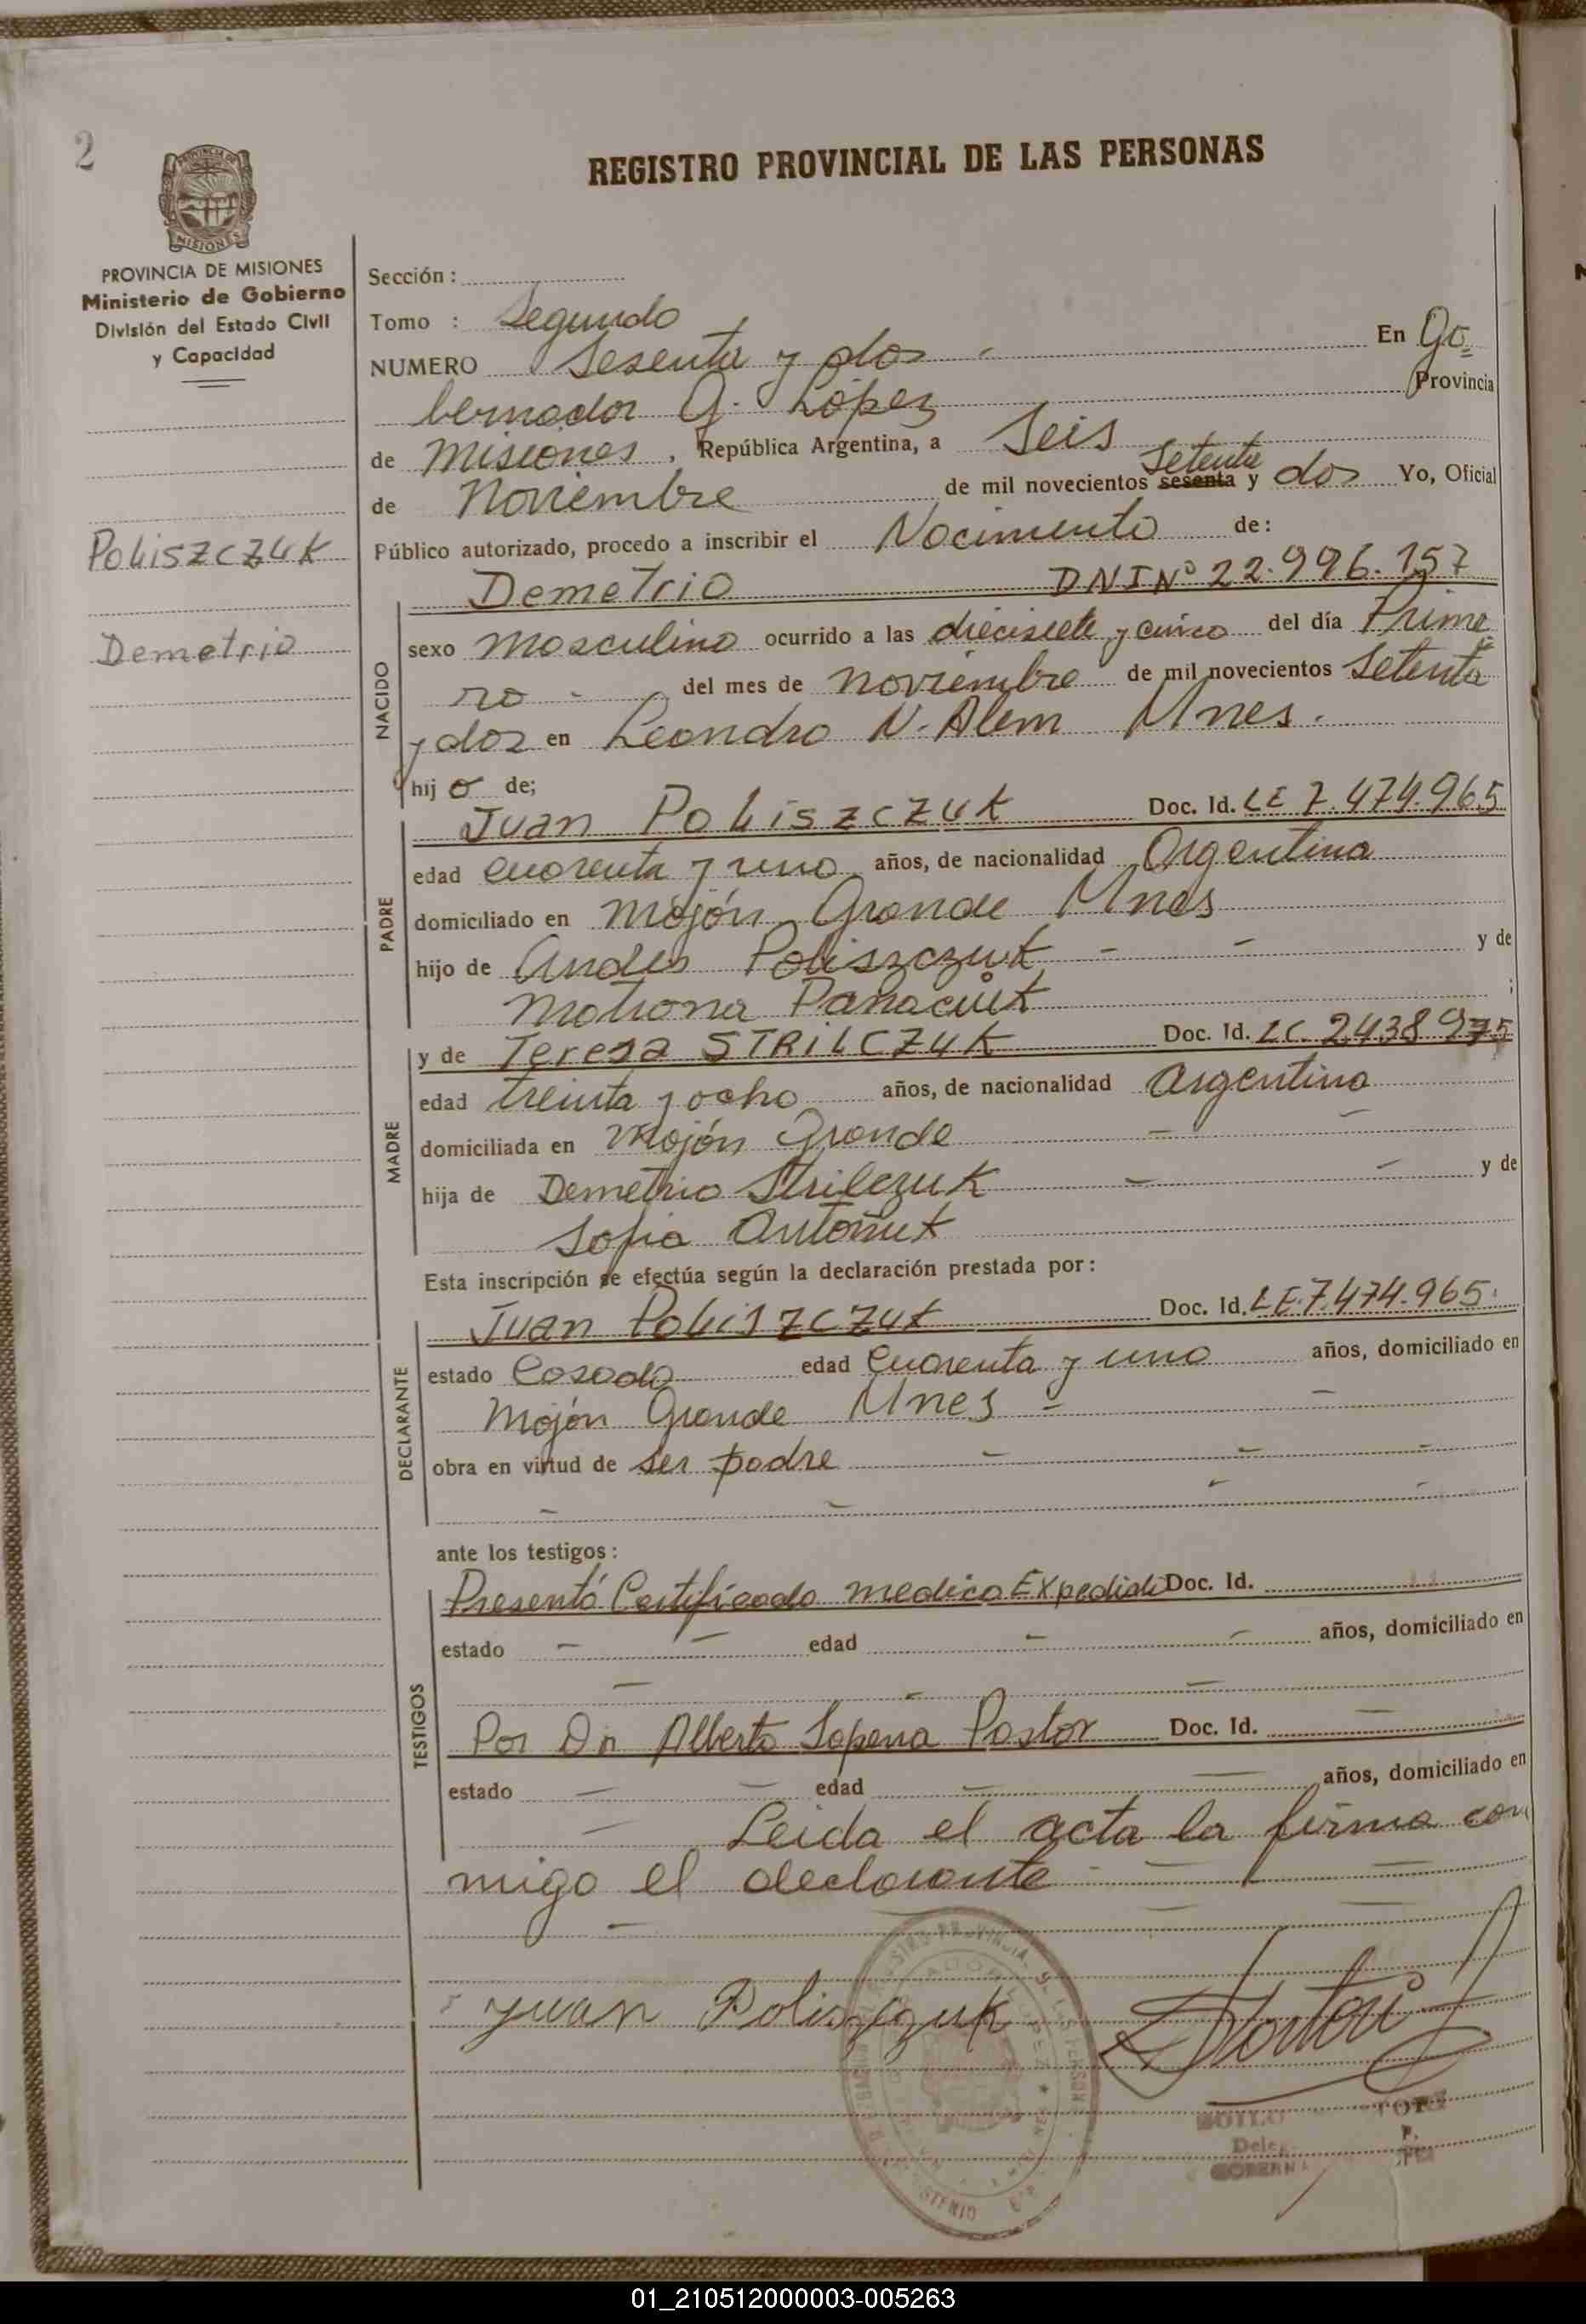 2
PROVINCIA DE MISIONES
Ministerio de Gobierno
División del Estado Civil
y Capacidad
Poliszczuk
Demetrio
REGISTRO PROVINCIAL DE LAS PERSONAS
Sección :
Tomo : Segundo
NUMERO Sesenta y dos - En Go=
bernador G. López Provincia
de Misiones, República Argentina, a Seis
de Noviembre de mil novecientos sesenta Setenta y dos Yo, Oficial
Público autorizado, procedo a inscribir el Nacimiento de:
NACIDO
Demetrio DNI Nº 22.996.157
sexo Masculino ocurrido a las diecisiete y cinco del día Prime=
ro - del mes de noviembre de mil novecientos Setenta
y dos en Leandro N. Alem Mnes.
hijo de;
PADRE
Juan Poliszczuk Doc. Id. LE 7.474.965
edad cuarenta y uno años, de nacionalidad Argentina
domiciliado en Mojón Grande Mnes
hijo de Andes Poliszczuk - - y de
Motrona
MADRE
y de Teresa STRILCZUK Doc. Id. LC. 2438975
edad treinta y ocho años, de nacionalidad Argentina
domiciliada en Mojón Grande - -
hija de Demetrio Strilczuk - - y de
Sofia Antoñuk
Esta inscripción se efectúa según la declaración prestada por :
DECLARANTE
Juan Poliszczuk Doc. Id. LE.7.474.965.
estado Casado edad Cuarenta y uno años, domiciliado en
Mojón Grande Mnes - -
obra en virtud de ser padre - - -
ante los testigos :
TESTIGOS
Presentó Certificado medico Expedido Doc. Id.
estado - - edad - - años, domiciliado en
Por Dr. Alberto Sopena Pastor Doc. Id. -
estado - - edad - - años, domiciliado en
- Leida el acta la firma con
migo el declarante - - -
Juan Poliszczuk
01_210512000003-005263